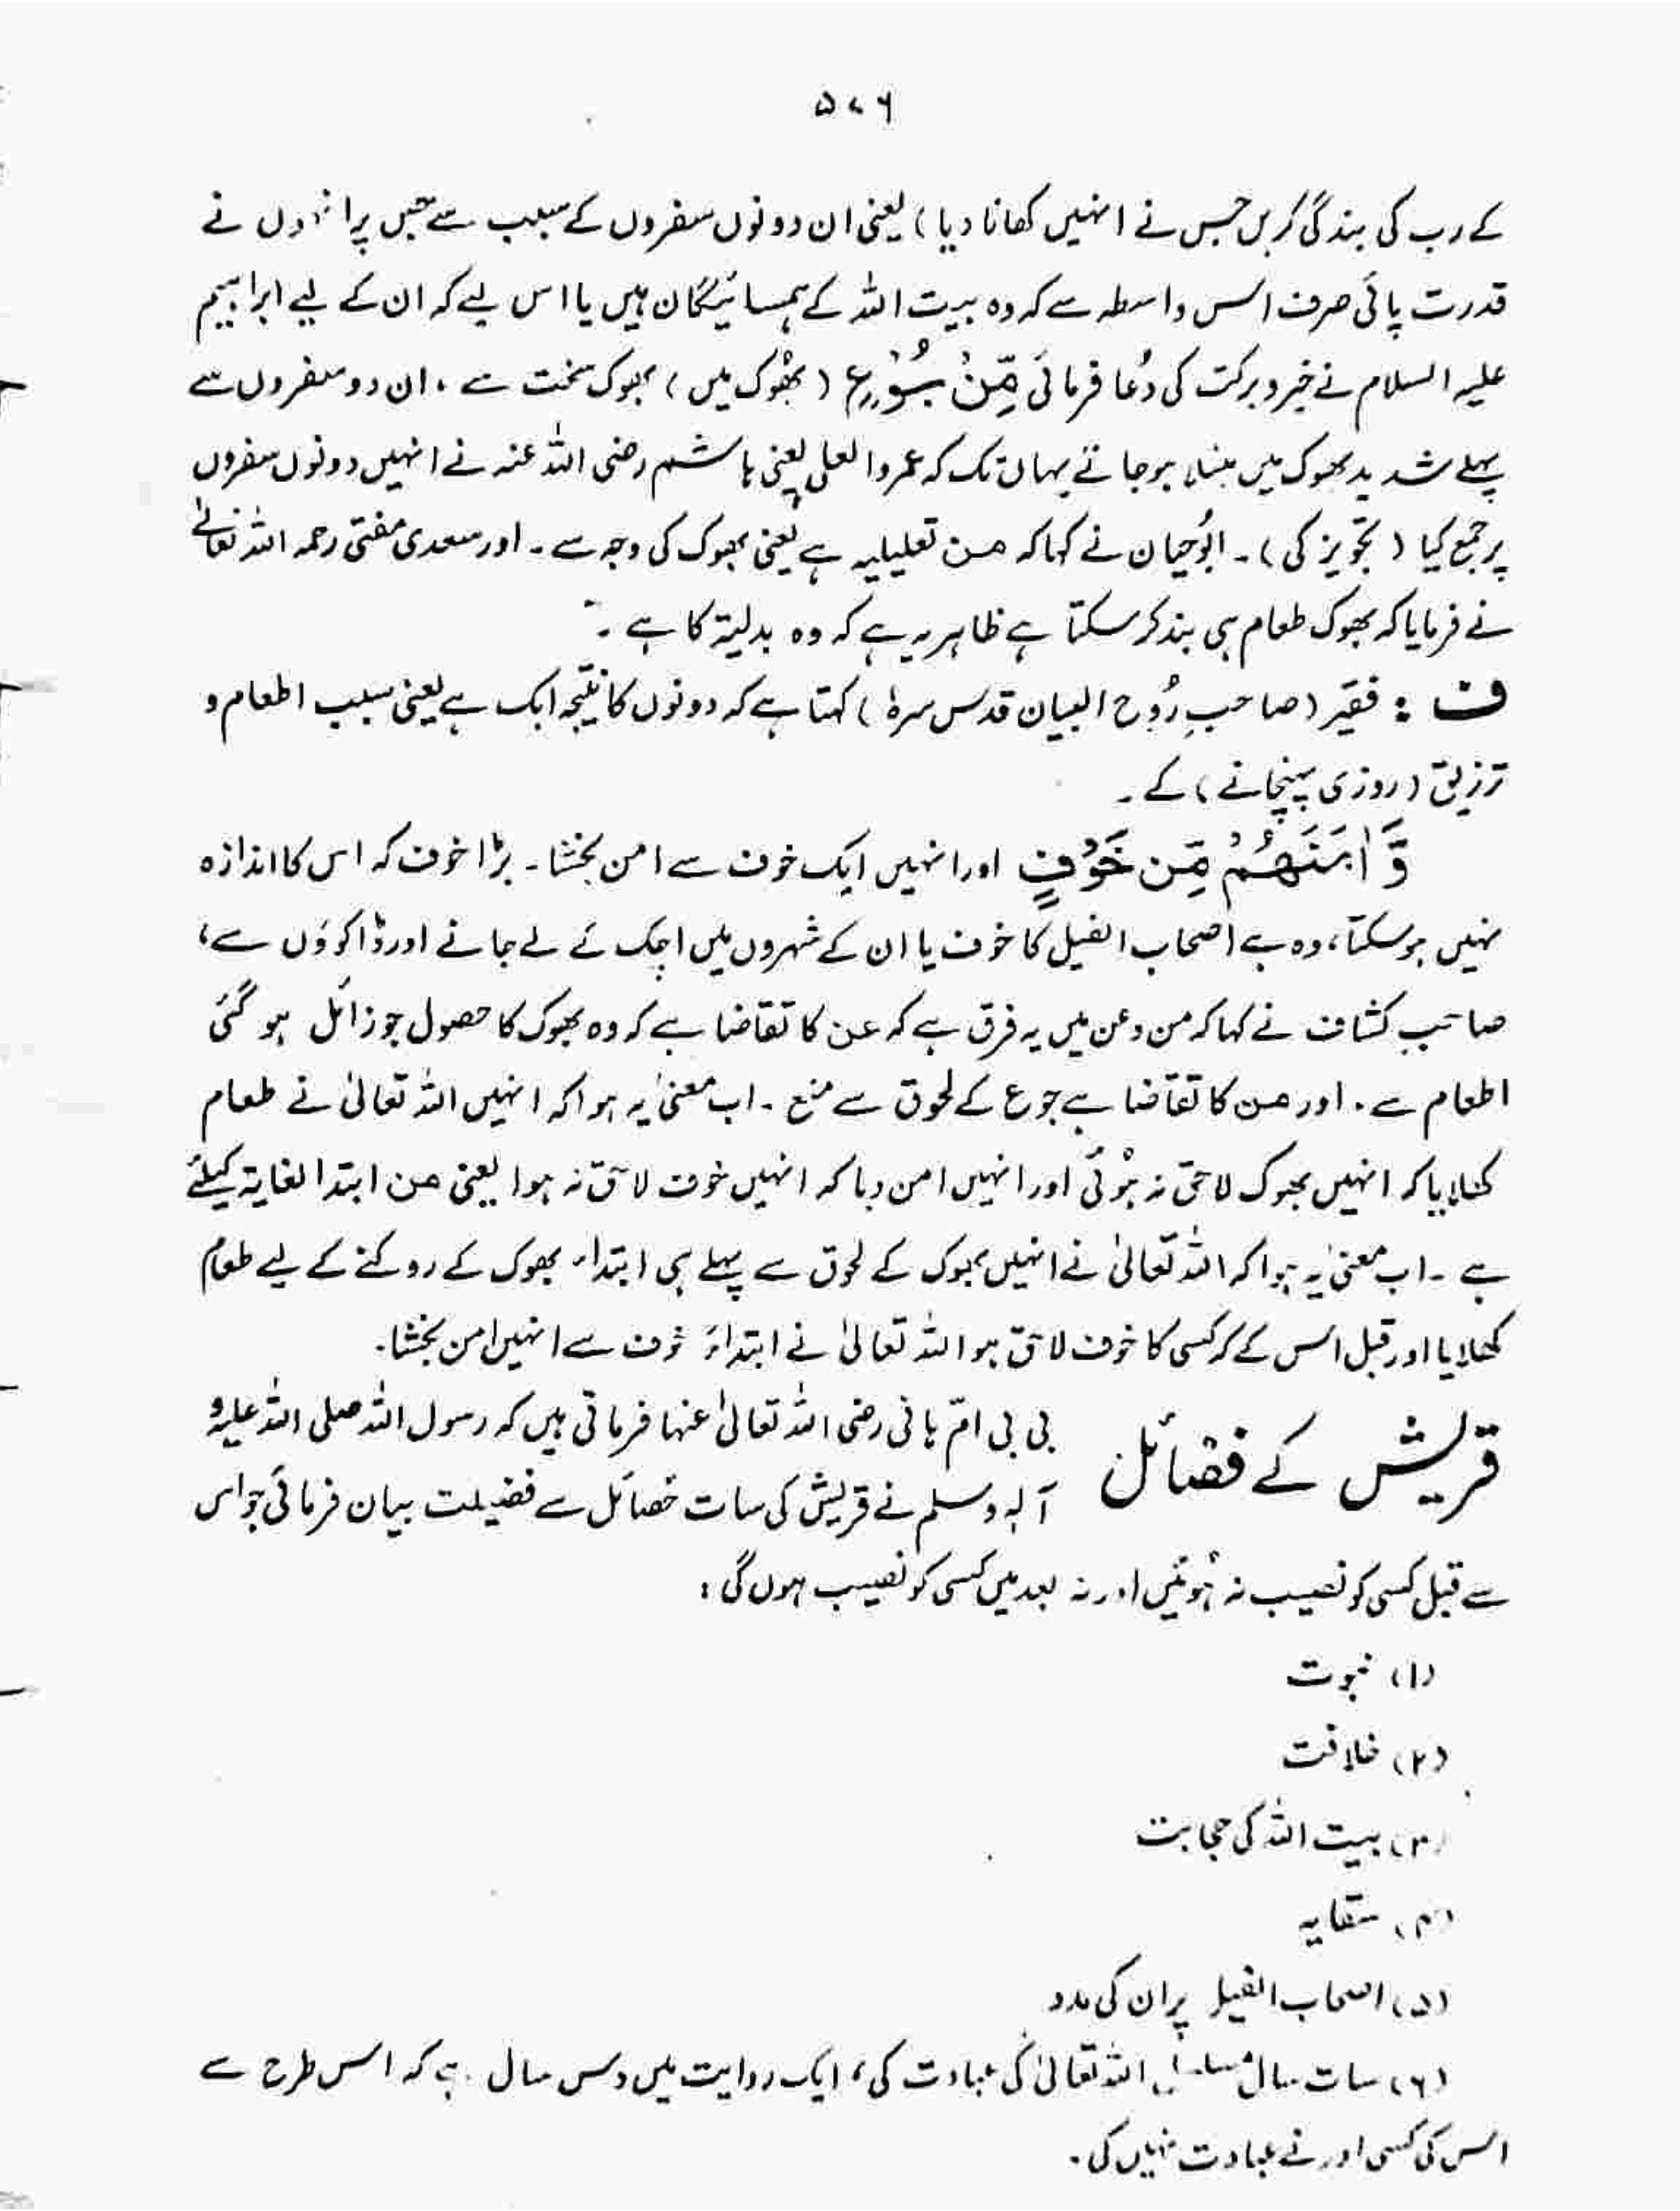 ۵۷۶
کے رب کی بندگی کریں جس نے انہیں کھانا دیا) یعنی ان دونوں سفروں کے سبب سے جس پر انہوں نے
قدرت پائی صرف اس واسطہ سے کہ وہ بیت اللہ کے ہمسائیگان ہیں یا اس لیے کہ ان کے لیے ابراہیم
علیہ السلام نے خیر و برکت کی دُعا فرمائی مِّنْ جُوْعٍ (بھُوک میں) بھوک سخت سے ، ان دو سفروں سے
پہلے شدید بھوک میں مبتلا ہو جاتے یہاں تک کہ عمرو العلی یعنی ہاشم رضی اللہ عنہ نے انہیں دونوں سفروں
پر جمع کیا (تجویز کی)۔ ابُوحیان نے کہا کہ من تعلیلیہ ہے یعنی بھوک کی وجہ سے۔ اور سعدی مفتی رحمہ اللہ تعالےٰ
نے فرمایا کہ بھوک طعام ہی بند کر سکتا ہے ظاہر یہ ہے کہ وہ بدلیۃ کا ہے ۔
ف : فقیر (صاحبِ رُوح البیان قدس سرہٗ) کہتا ہے کہ دونوں کا نتیجہ ایک ہے یعنی سبب اطعام و
ترزیق (روزی پہنچانے) کے ۔
وَّ اٰمَنَهُمْ مِّنْ خَوْفٍ اور انہیں ایک خوف سے امن بخشا۔ بڑا خوف کہ اس کا اندازہ
نہیں ہو سکتا، وہ ہے اصحاب الفیل کا خوف یا ان کے شہروں میں اچک کے لے جانے اور ڈاکوؤں سے،
صاحبِ کشاف نے کہا کہ من و عن میں یہ فرق ہے کہ عن کا تقاضا ہے کہ وہ بھوک کا حصول جو زائل ہو گئی
اطعام سے۔ اور من کا تقاضا ہے جوع کے لحوق سے منع ۔ اب معنیٰ یہ ہوا کہ انہیں اللہ تعالیٰ نے طعام
کھلایا کہ انہیں بھوک لاحق نہ ہُوئی اور انہیں امن دیا کہ انہیں خوف لاحق نہ ہوا یعنی من ابتدا الغایۃ کیلئے
ہے ۔ اب معنیٰ یہ ہوا کہ اللہ تعالیٰ نے انہیں بھوک کے لحوق سے پہلے ہی ابتداء بھوک کے روکنے کے لیے طعام
کھلایا اور قبل اس کے کہ کسی کا خوف لاحق ہو اللہ تعالیٰ نے ابتداءً خوف سے انہیں امن بخشا۔
قریش کے فضائل بی بی امّ ہانی رضی اللہ تعالیٰ عنہا فرماتی ہیں کہ رسول اللہ صلی اللہ علیہ و
آلہ وسلم نے قریش کی سات خصائل سے فضیلت بیان فرمائی جو اس
سے قبل کسی کو نصیب نہ ہُوئیں اور نہ بعد میں کسی کو نصیب ہوں گی :
(۱) نبوت
(۲) خلافت
(۳) بیت اللہ کی حجابت
(۴) سقایہ
(۵) اصحاب الفیل پر ان کی مدد
(۶) سات سال اللہ تعالیٰ کی عبادت کی، ایک روایت میں دس سال ہے کہ اس طرح سے
اس کی کسی اور نے عبادت نہیں کی۔